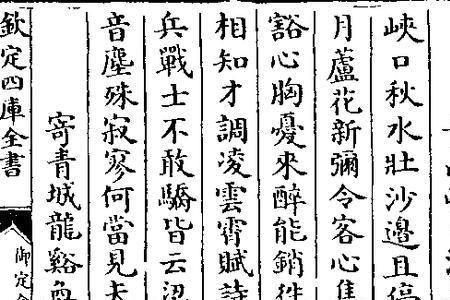 峽口秋水壯沙邉且停
月蘆花新彌令客心焦
豁心胸憂來醉能銷往
相知才調凌雲霄賦詩
兵戰士不敢驕皆云
音塵殊寂寥何當見夫
寄青城龍谿奐
欽定四庫全書
御定全